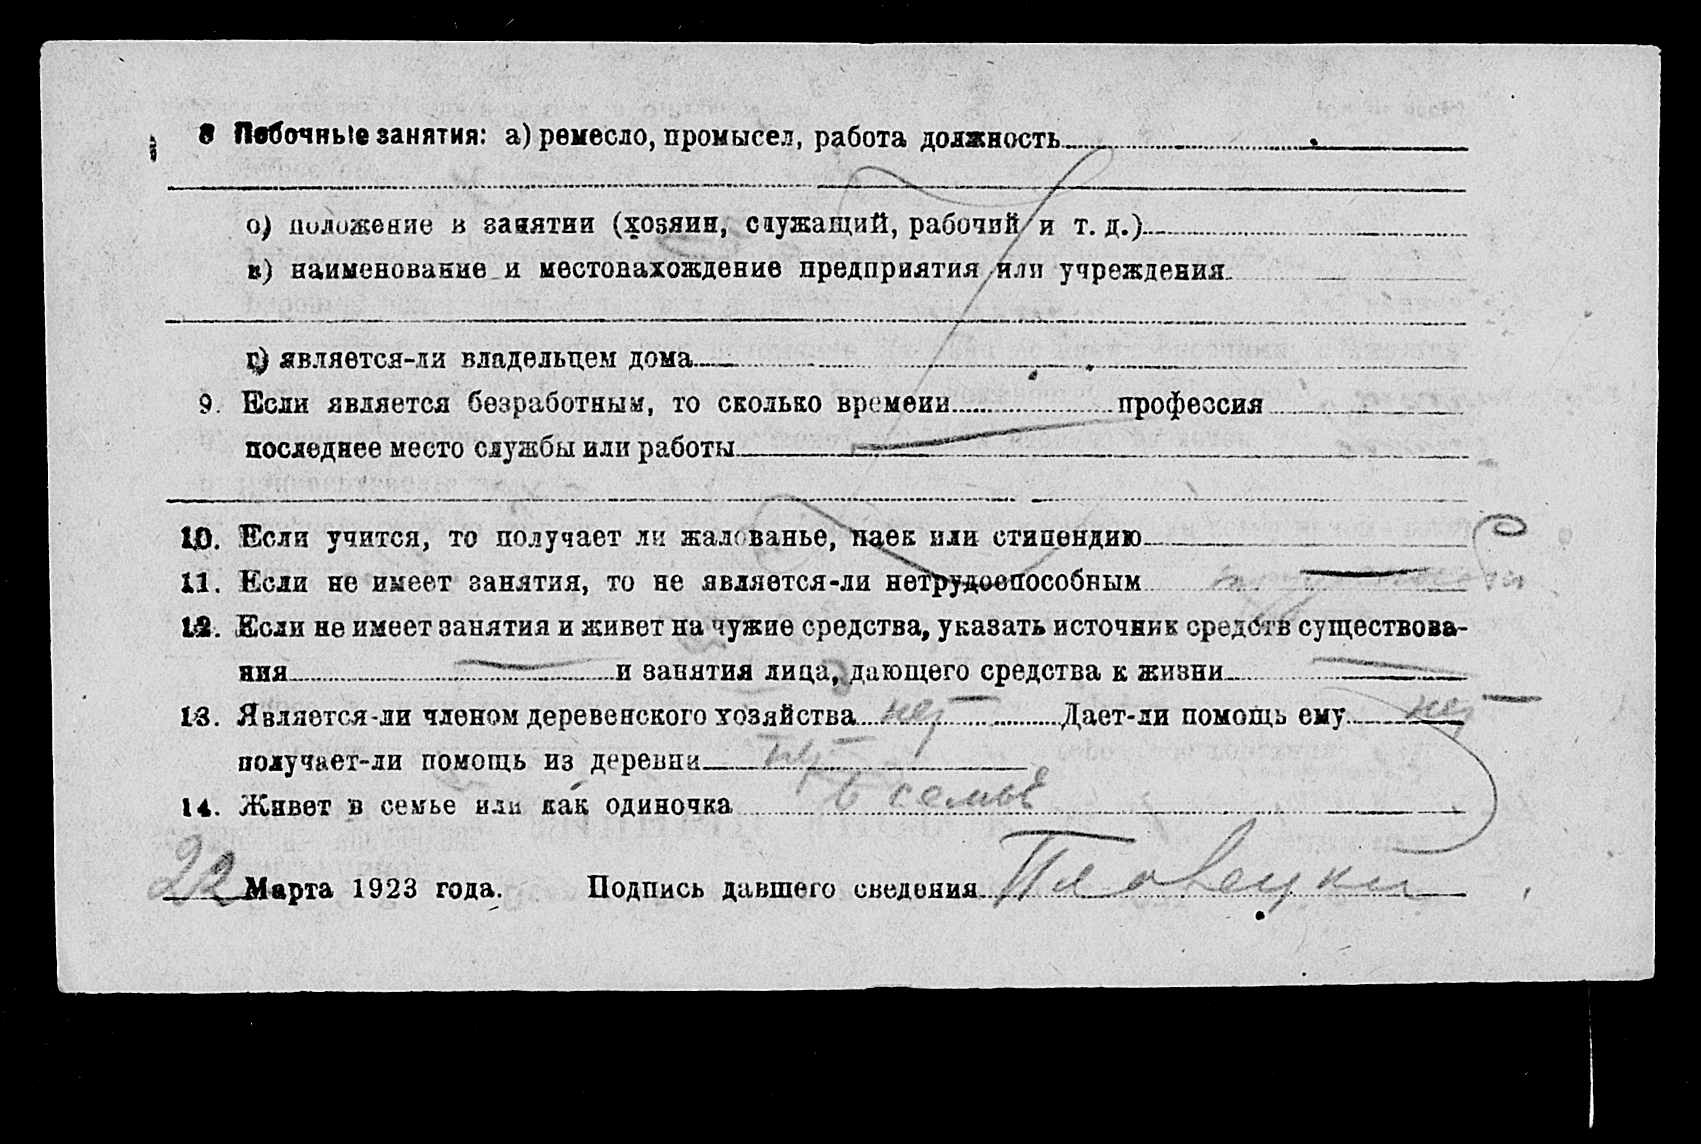 8 Побочные занятия: а) ремесло, промысел, работа должность
о) положение в занятии (хозяин, служащий, рабочий и т. д.)
в) наименование и местонахождение предприятия или учреждения
г) является-ли владельцем дома
9. Если является безработным, то сколько времени профессия
последнее место службы или работы
10. Если учится, то получает ли жалованье, паек или стипендию
11. Если не имеет занятия, то не является-ли нетрудоспособным
12. Если не имеет занятия и живет на чужие средства, указать источник средств существова-
ния и занятия лица, дающего средства к жизни
13. Является-ли членом деревенского хозяйства нет Дает-ли помощь ему нет
получает-ли помощь из деревни нет
14. Живет в семье или как одиночка в семье
22 Марта 1923 года. Подпись давшего сведения